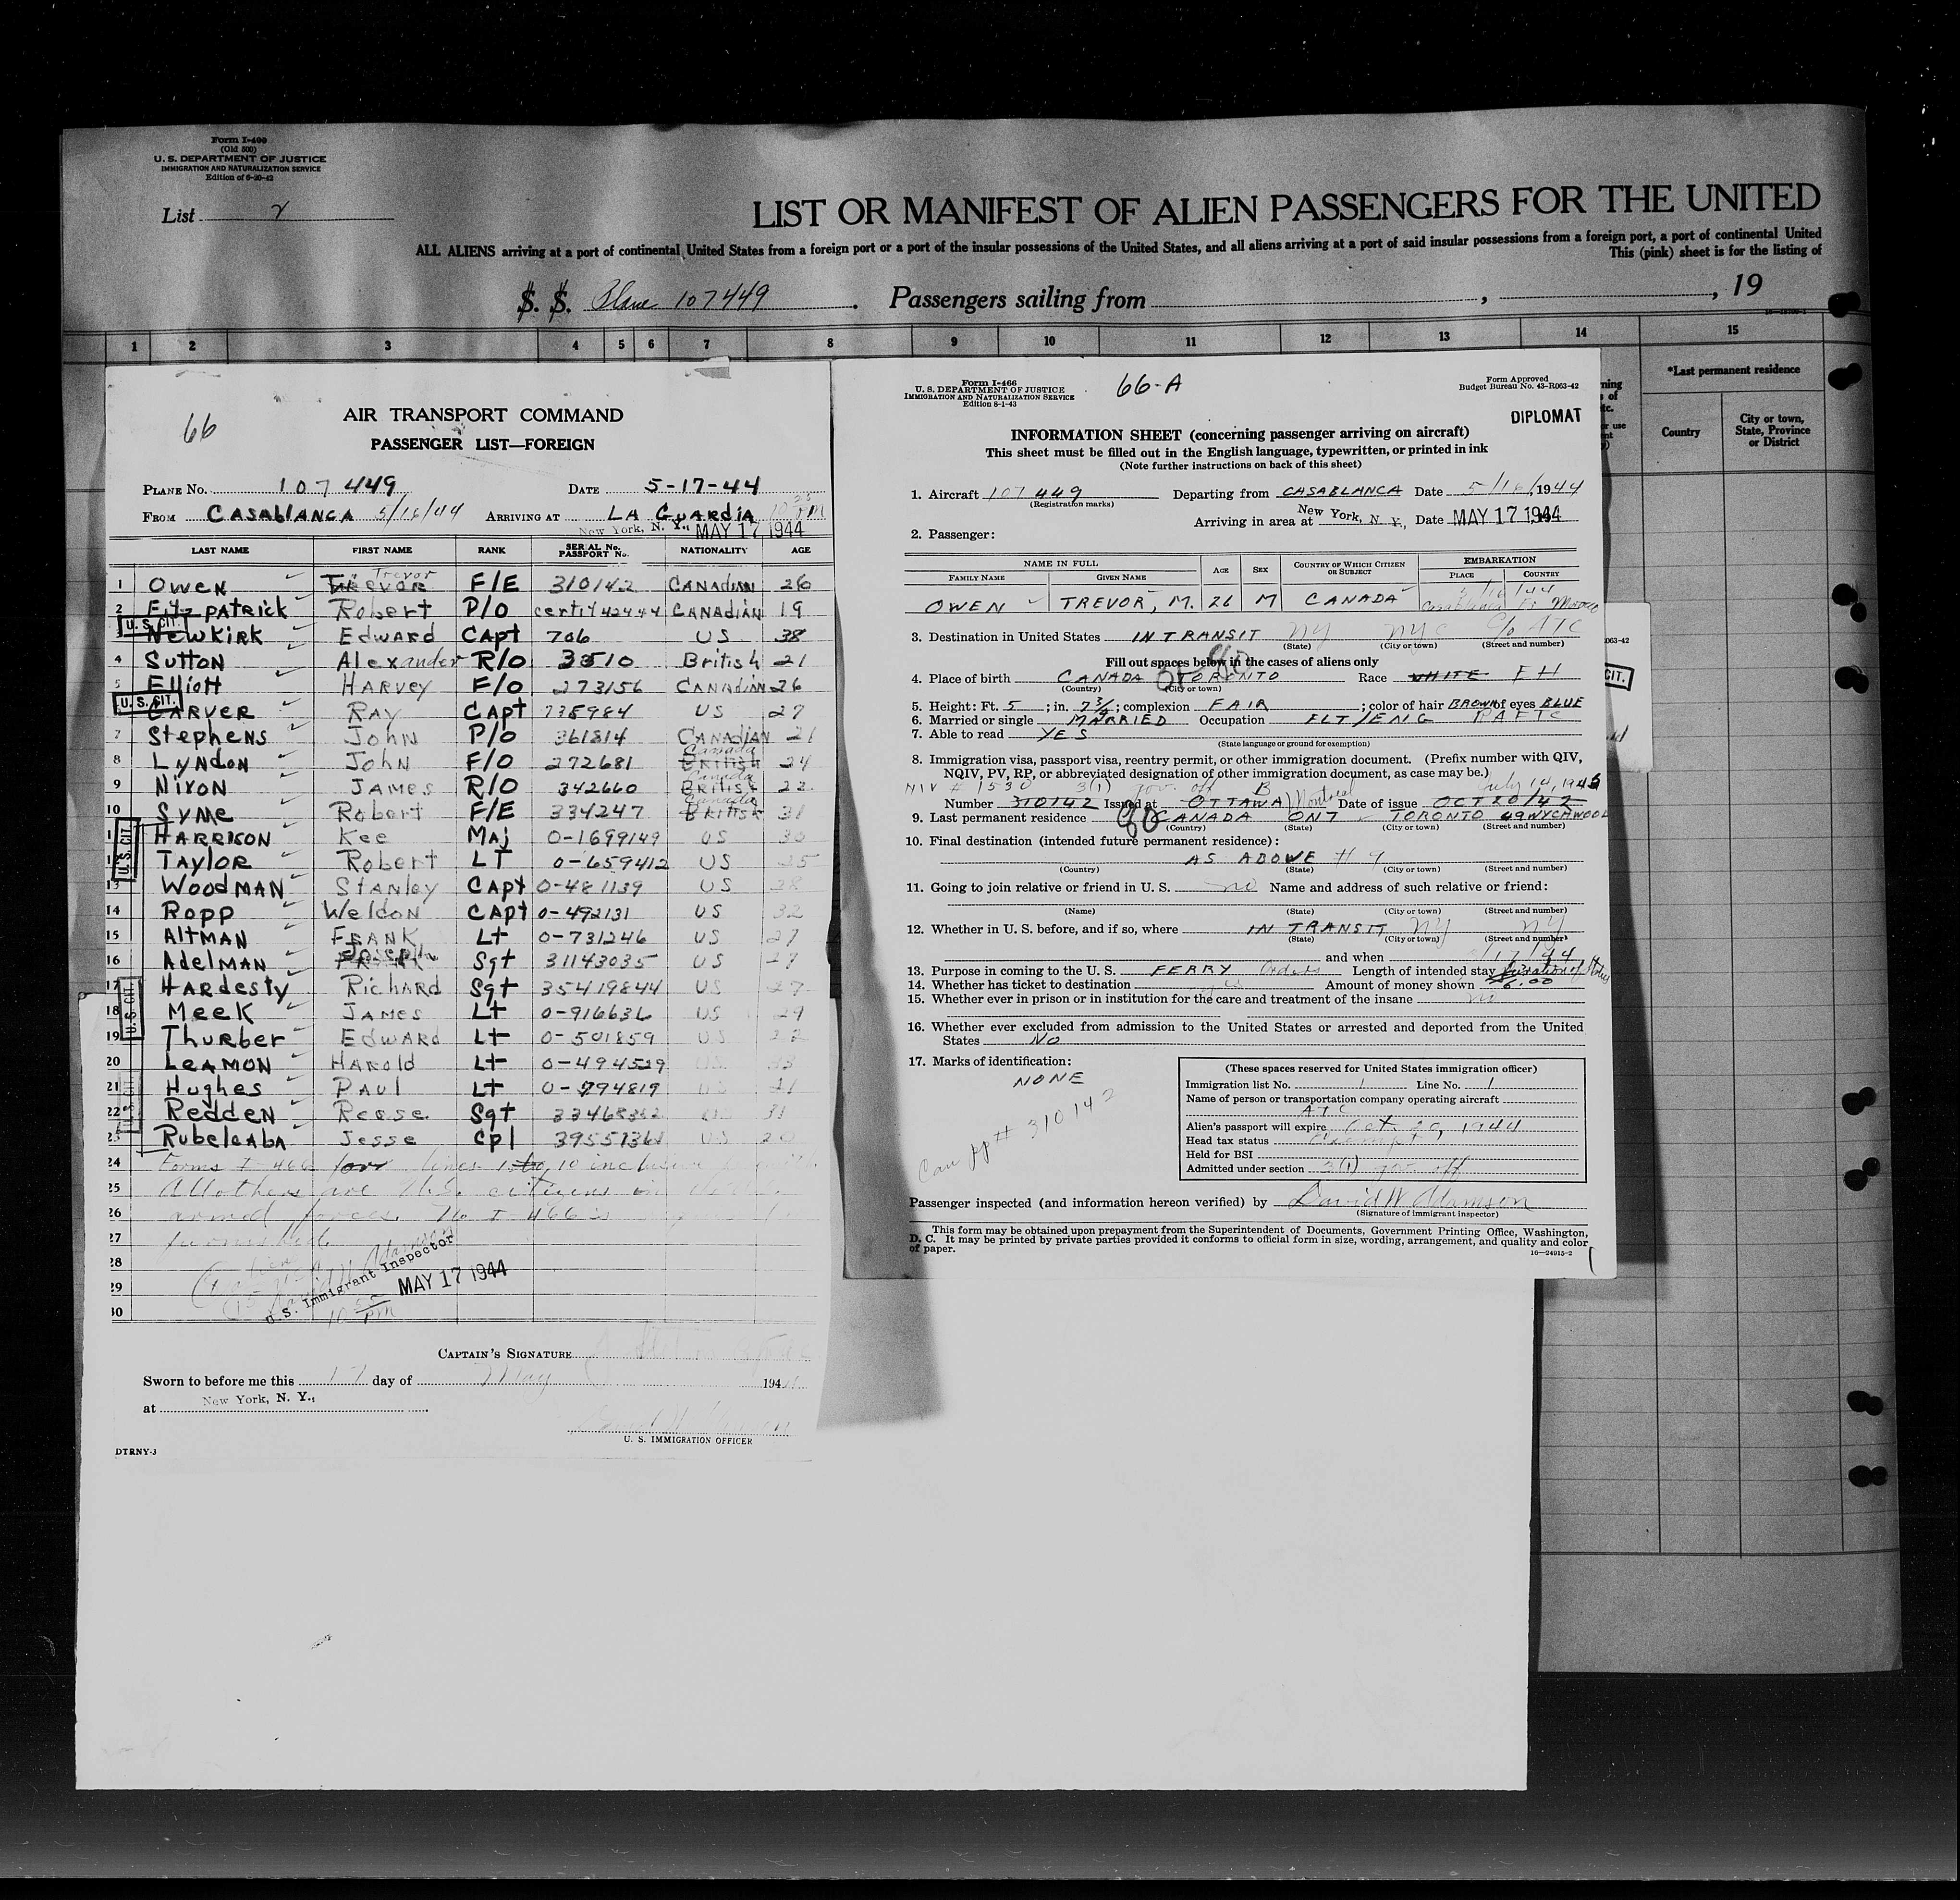 Form I-466
(Old 500)
U. S. DEPARTMENT OF JUSTICE
IMMIGRATION AND NATURALIZATION SERVICE
Edition of 6-20-42
List 2
LIST OR MANIFEST OF ALIEN PASSENGERS FOR THE UNITED
ALL ALIENS arriving at a port of continental United States from a foreign port or a port of the insular possessions of the United States, and all aliens arriving at a port of said insular possessions from a foreign port, a port of continental United
This (pink) sheet is for the listing of
S. S. Plane 107449. Passengers sailing from , , 19
1 2 3 4 5 6 7 8 9 10 11 12 13 14 15
*Last permanent residence
Country
City or town, State, Province or District
66
AIR TRANSPORT COMMAND
PASSENGER LIST—FOREIGN
PLANE No. 107449 DATE 5-17-44
FROM CASABLANCA 5/16/44 ARRIVING AT LA GUARDIA
New York, N. Y., MAY 17 1944
LAST NAME FIRST NAME RANK SERIAL No. PASSPORT No. NATIONALITY AGE
1 OWEN Trevor F/E 310142 CANADIAN 26
2 Fitz patrick Robert P/O certif 42444 CANADIAN 19
U. S. CIT.
NewKIRK Edward CApt 706 US 38
4 Sutton Alexander R/O 3510 British 21
5 Elliott HARVEY F/O 273156 CANADIAN 26
U. S. CIT.
CARVER RAY CApt 735984 US 27
7 Stephens John P/O 361814 CANADIAN 21
8 LYNdoN John F/O 272681 British Canada 24
9 NixoN JAMES R/O 342660 British Canada 22
10 SYMe Robert F/E 334247 British Canada 31
U. S. CIT.
HARRISON Kee Maj 0-1699149 US 30
TAYLOR Robert LT 0-659412 US 25
13 WOODMAN Stanley CApt 0-481139 US 28
14 Ropp Weldon CApt 0-492131 US 32
15 AltMAN FRANK Lt 0-731246 US 27
16 AdelMAN Joseph Sgt 31143035 US 27
17 HARdesty Richard Sgt 35419844 US 27
U. S. CIT.
18 Meek JAMES Lt 0-916636 US 29
19 Thurber EDWARd Lt 0-501859 US 22
20 LeAMON HARold Lt 0-494529
21 Hughes PAUL Lt 0-794819
22 Redden Reese Sgt 31
Rubelcaba Jesse Cpl US 20
24 Forms I-466 for lines 1 to 10 inclusive
25 All others are U.S. citizens in
26 armed forces. No I-466's
27 furnished.
28
29
30
U. S. Immigrant Inspector
MAY 17 1944
CAPTAIN'S SIGNATURE
Sworn to before me this 17 day of May 194
at New York, N. Y.,
U. S. IMMIGRATION OFFICER
DTRNY-3
Form I-466
U. S. DEPARTMENT OF JUSTICE
IMMIGRATION AND NATURALIZATION SERVICE
Edition 8-1-43
66-A
Form Approved
Budget Bureau No. 43-R063-42
DIPLOMAT
INFORMATION SHEET (concerning passenger arriving on aircraft)
This sheet must be filled out in the English language, typewritten, or printed in ink
(Note further instructions on back of this sheet)
1. Aircraft 107449 Departing from CASABLANCA Date 5/16/1944
(Registration marks)
Arriving in area at New York, N. Y., Date MAY 17 1944
2. Passenger:
NAME IN FULL AGE SEX COUNTRY OF WHICH CITIZEN OR SUBJECT EMBARKATION
FAMILY NAME GIVEN NAME PLACE COUNTRY
OWEN TREVOR, M. 26 M CANADA 5/16/44 Casablanca Fr Morocco
3. Destination in United States IN TRANSIT NY NYC c/o ATC
(State) (City or town) (Street and number)
Fill out spaces below in the cases of aliens only
4. Place of birth CANADA TORONTO Race WHITE EH
(Country) (City or town)
5. Height: Ft. 5; in. 7¾; complexion FAIR; color of hair BROWN of eyes BLUE
6. Married or single MARRIED Occupation FLT/ENG RAFTC
7. Able to read YES
(State language or ground for exemption)
8. Immigration visa, passport visa, reentry permit, or other immigration document. (Prefix number with QIV,
NQIV, PV, RP, or abbreviated designation of other immigration document, as case may be.)
NIV # 1530 3(1) gov. off
Number 310142 Issued at OTTAWA Montreal Date of issue OCT 20/42
9. Last permanent residence CANADA ONT TORONTO 49 WYCHWOOD
(Country) (State) (City or town) (Street and number)
10. Final destination (intended future permanent residence):
AS ABOVE #9
(Country) (State) (City or town) (Street and number)
11. Going to join relative or friend in U. S. no Name and address of such relative or friend:
(Name) (State) (City or town) (Street and number)
12. Whether in U. S. before, and if so, where IN TRANSIT NY NY
(State) (City or town) (Street and number)
and when
13. Purpose in coming to the U. S. FERRY Orders Length of intended stay
14. Whether has ticket to destination yes Amount of money shown
15. Whether ever in prison or in institution for the care and treatment of the insane no
16. Whether ever excluded from admission to the United States or arrested and deported from the United
States NO
17. Marks of identification:
NONE
Can pp# 310142
(These spaces reserved for United States immigration officer)
Immigration list No. 1 Line No. 1
Name of person or transportation company operating aircraft
ATC
Alien's passport will expire Oct. 20, 1944
Head tax status exempt
Held for BSI
Admitted under section 3(1) gov. off
Passenger inspected (and information hereon verified) by David W Adamson
(Signature of immigrant inspector)
This form may be obtained upon prepayment from the Superintendent of Documents, Government Printing Office, Washington,
D. C. It may be printed by private parties provided it conforms to official form in size, wording, arrangement, and quality and color
of paper.
16—24915-2